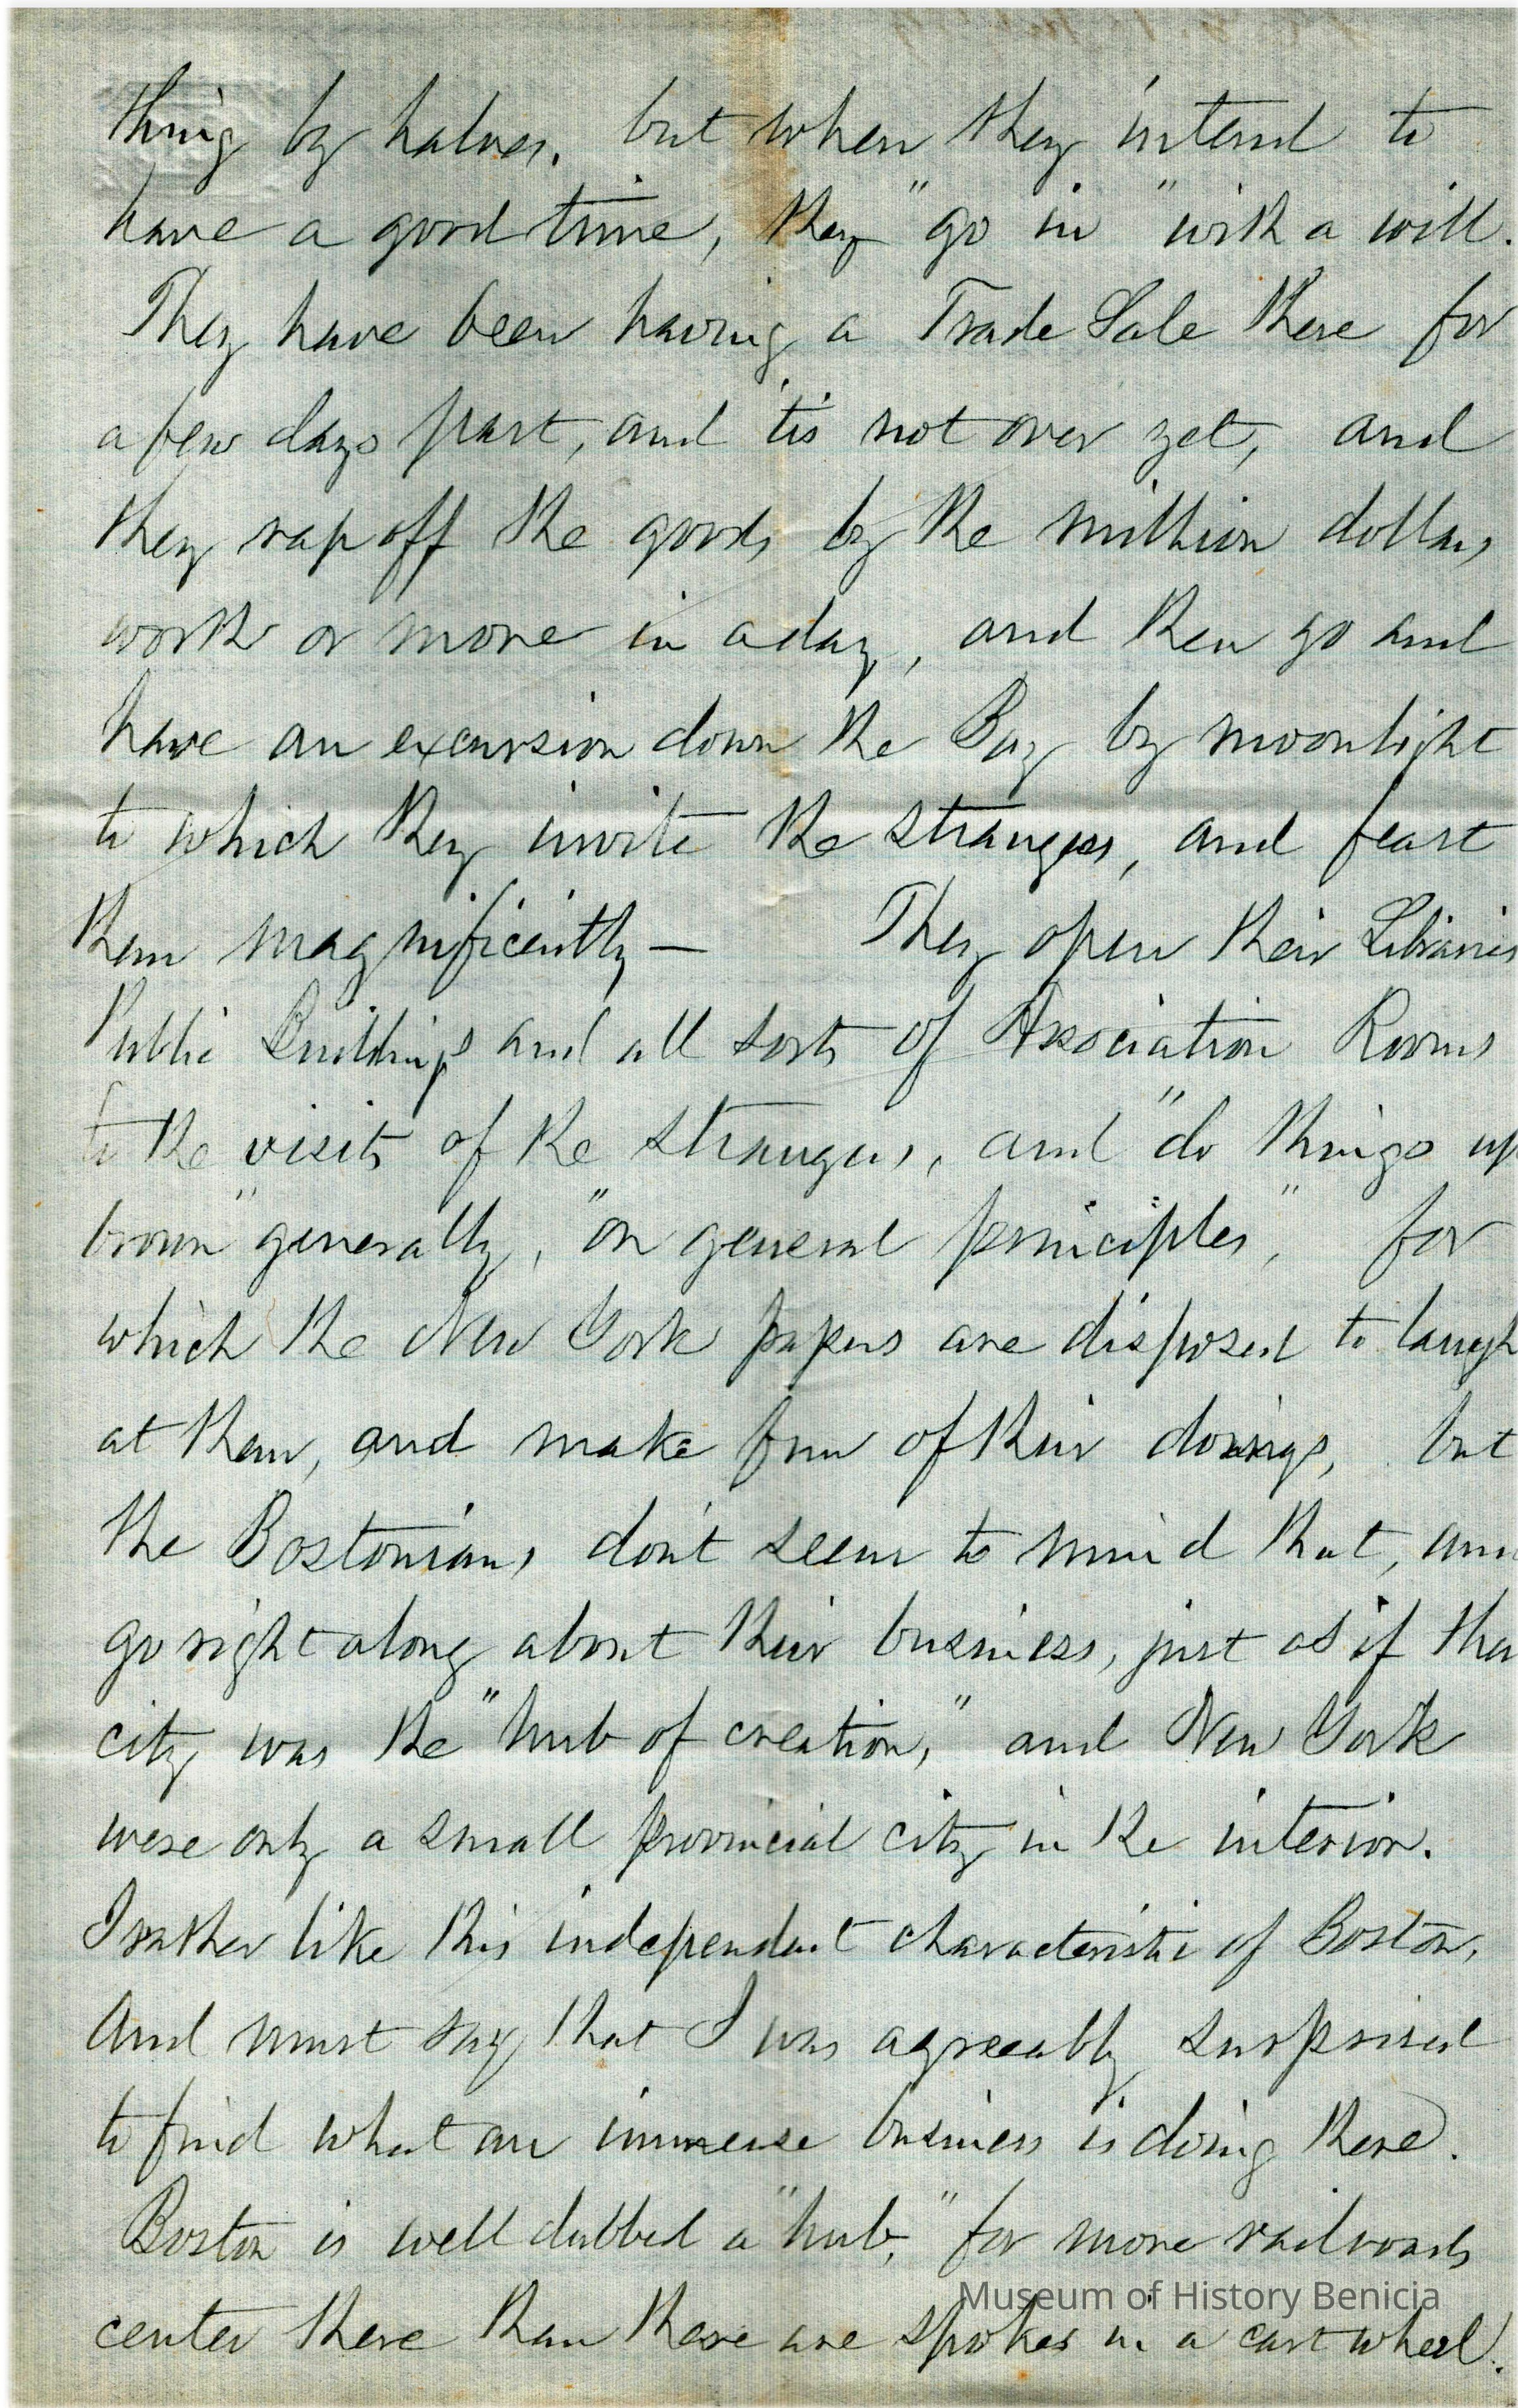 thing by halves, but when they intend to
have a good time, they "go in" with a will.
They have been having a Trade Sale there for
a few days past, and 'tis not over yet, and
they rap off the goods by the million dollars
worth or more in a day, and then go and
have an excursion down the Bay by moonlight
to which they invite the strangers, and feast
them magnificently — They open their Libraries
Public Buildings and all sorts of Association Rooms
to the visits of the strangers, and "do things up
brown" generally, "on general principles," for
which the New York papers are disposed to laugh
at them, and make fun of their doings, but
the Bostonians don't seem to mind that, and
go right along about their business, just as if the
city was the "hub of creation," and New York
were only a small provincial city in the interior.
I rather like this independent characteristic of Boston,
And must say that I was agreeably surprised
to find what an immense business is doing there.
Boston is well dubbed a "hub," for more railroads
Museum of History Benicia
center there than there are spokes in a cart wheel.